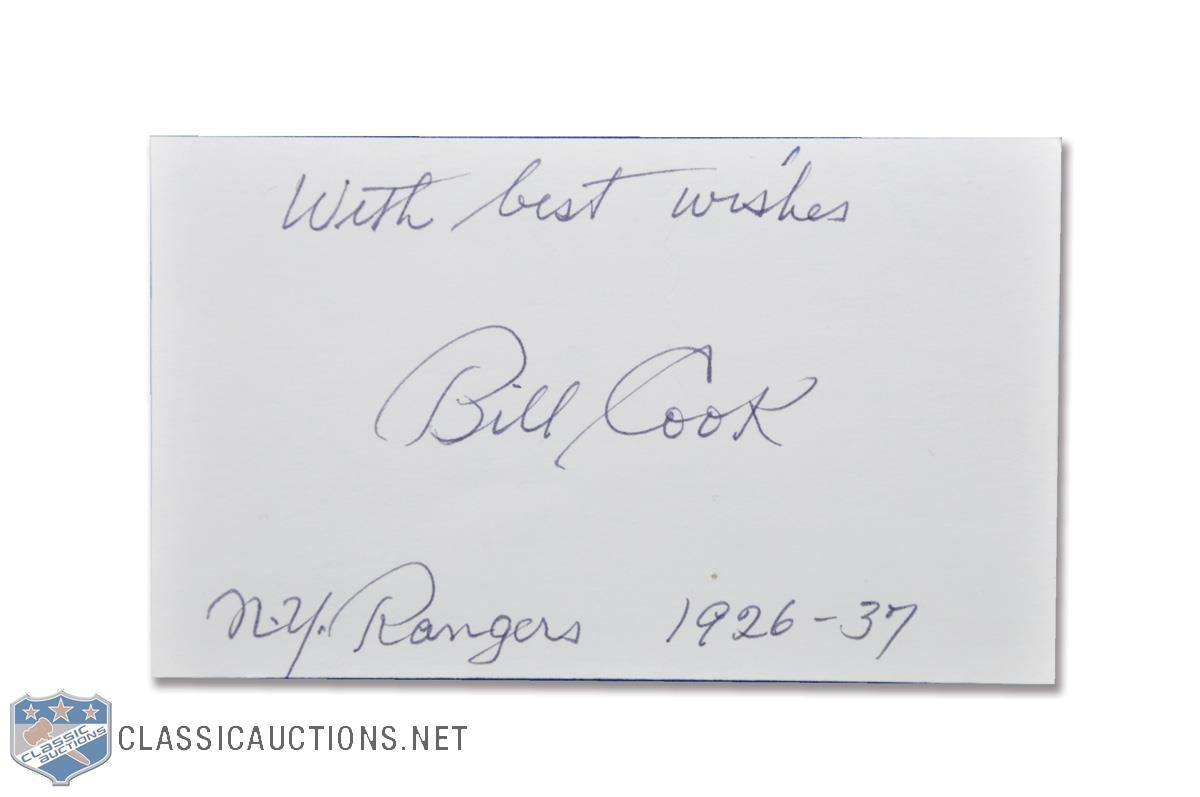 With best wishes
Bill Cook
N.Y. Rangers 1926-37
CLASSIC
AUCTIONS
CLASSICAUCTIONS.NET